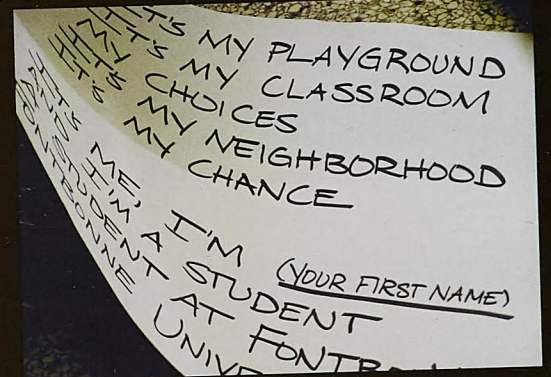 IT'S MY PLAYGROUND
IT'S MY CLASSROOM
MY CHOICES
IT'S MY NEIGHBORHOOD
IT'S MY CHANCE
IT'S ME, I'M (YOUR FIRST NAME)
AND I'M A STUDENT
STUDENT AT
FONTBONNE